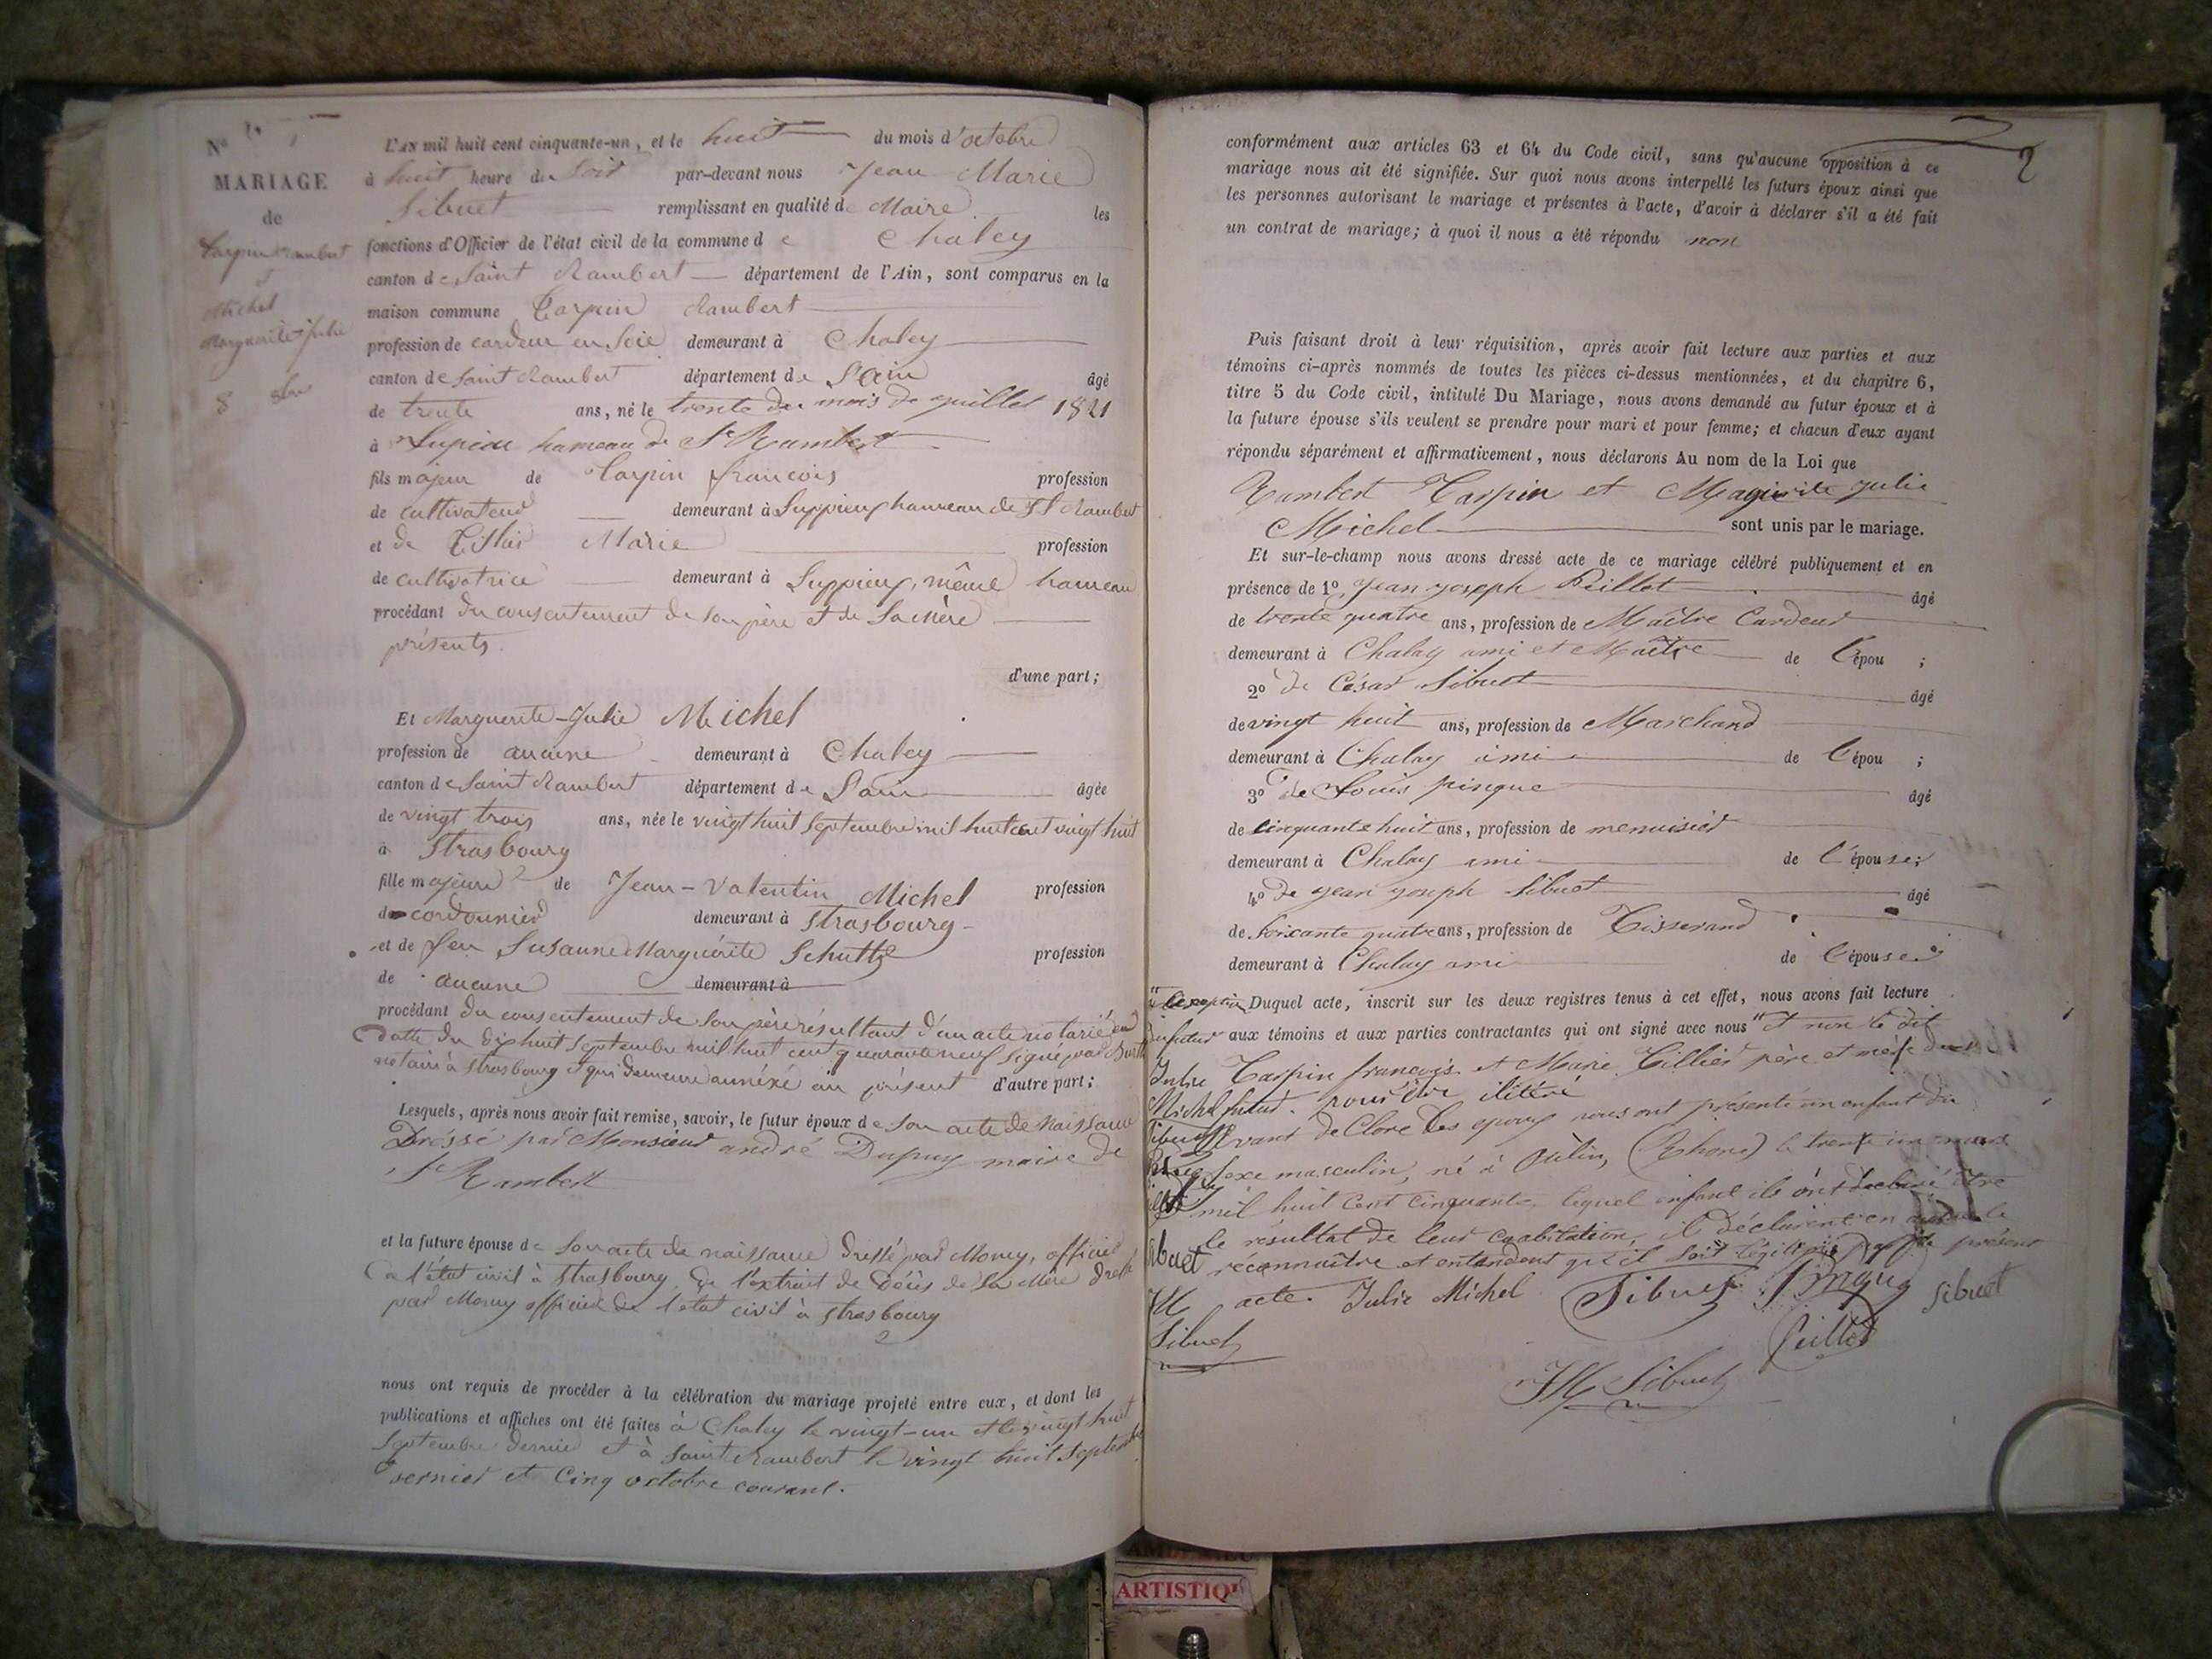 No
MARIAGE
de
Carpin Rambert
et
Michel
Marguerite-Julie
8 8bre
L'AN mil huit cent cinquante-un, et le huit du mois d'octobre
à huit heure du soir par-devant nous Jean Marie
Sibuet remplissant en qualité de Maire les
fonctions d'Officier de l'état civil de la commune de Chaley
canton de Saint Rambert département de l'Ain, sont comparus en la
maison commune Carpin Rambert
profession de cardeur en Soie demeurant à Chaley
canton de Saint Rambert département de l'ain âgé
de trente ans, né le trente du mois de juillet 1821
à Lupieu hameau de St Rambert
fils majeur de Carpin françois profession
de cultivateur demeurant à Suppieux hameau de St Rambert
et de Marie profession
de cultivatrice demeurant à Suppieux, même hameau
procédant du consentement de son père et de Sa mère
présents.
d'une part;
Et Marguerite-Julie Michel
profession de aucune demeurant à Chaley
canton de Saint Rambert département de l'ain âgée
de vingt trois ans, née le vingt huit septembre mil huit cent vingt huit
à Strasbourg
fille majeure de Jean-Valentin Michel profession
de cordonnier demeurant à Strasbourg-
et de feu Susanne Marguérite Schultz profession
de aucune demeurant à
procédant du consentement de son père résultant d'un acte notarié en
datte du dix huit septembre mil huit cent quarante neuf signé par
notaire à Strasbourg et qui demeure annéxé au présent d'autre part;
Lesquels, après nous avoir fait remise, savoir, le futur époux de son acte de naissance
Dréssé par Monsieur andré Dupuy maire de
St Rambert
et la future épouse de son acte de naissance dréssé par Morny, officier
de l'état civil à Strasbourg, de l'extrait de Décès de Sa Mère dressé
par Morny officier de l'état civil à Strasbourg
nous ont requis de procéder à la célébration du mariage projeté entre eux, et dont les
publications et affiches ont été faites à Chaley le vingt-un et le vingt huit
septembre dernier et à Saint Rambert le vingt huit septembre
dernier et cinq octobre courant.
2
conformément aux articles 63 et 64 du Code civil, sans qu'aucune opposition à ce
mariage nous ait été signifiée. Sur quoi nous avons interpellé les futurs époux ainsi que
les personnes autorisant le mariage et présentes à l'acte, d'avoir à déclarer s'il a été fait
un contrat de mariage; à quoi il nous a été répondu non
Puis faisant droit à leur réquisition, après avoir fait lecture aux parties et aux
témoins ci-après nommés de toutes les pièces ci-dessus mentionnées, et du chapitre 6,
titre 5 du Code civil, intitulé Du Mariage, nous avons demandé au futur époux et à
la future épouse s'ils veulent se prendre pour mari et pour femme; et chacun d'eux ayant
répondu séparément et affirmativement, nous déclarons Au nom de la Loi que
Rambert Carpin et Magurite Julie
Michel sont unis par le mariage.
Et sur-le-champ nous avons dressé acte de ce mariage célébré publiquement et en
présence de 1o, Jean joseph Peillot âgé
de trente quatre ans, profession de Maître Cardeur
demeurant à Chaley ami et Maître de l'épou ;
2o de César Sibuet âgé
de vingt huit ans, profession de Marchand
demeurant à Chaley ami de l'épou ;
3o de Louis pingue âgé
de cinquante huit ans, profession de menuisier
demeurant à Chaley ami de l'épouse;
4o de jean joseph Sibuet âgé
de soixante quatre ans, profession de Tisserand
demeurant à Chaley ami de l'épouse
à l'exception Duquel acte, inscrit sur les deux registres tenus à cet effet, nous avons fait lecture
du futur aux témoins et aux parties contractantes qui ont signé avec nous " et non le dit
Julie Carpin françois et Marie Tillier père et mère du
Michel futur. pour être ilitéré
Sibuet Avant de Clore Les epoux nous ont présenté un enfant du
sexe masculin, né à Oulin, (Rhone) le trente un mars
mil huit cent cinquante, lequel enfant ils ont déclaré être
le résultat de leur coabitation, il déclarent en
Sibuet réconnaitre et entendent qu'il soit légitimé par le présent
JM acte. Julie Michel Sibuet Pingue Sibuet
Sibuet Peillot
JM Sibuet
ARTISTIQ